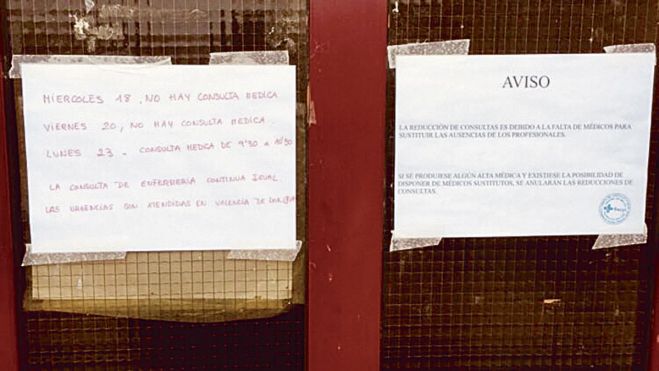 MIERCOLES 18, NO HAY CONSULTA MEDICA
VIERNES 20, NO HAY CONSULTA MEDICA.
LUNES 23 - CONSULTA MEDICA DE 9'30 A
LA CONSULTA DE ENFERMERIA CONTINUA IGUAL
LAS URGENCIAS SON ATENDIDAS EN VALENCIA DE DON JUAN
AVISO
LA REDUCCIÓN DE CONSULTAS ES DEBIDO A LA FALTA DE MÉDICOS PARA
SUSTITUIR LAS AUSENCIAS DE LOS PROFESIONALES.
SI SE PRODUJESE ALGÚN ALTA MÉDICA Y EXISTIESE LA POSIBILIDAD DE
DISPONER DE MÉDICOS SUSTITUTOS, SE ANULARÁN LAS REDUCCIONES DE
CONSULTAS.